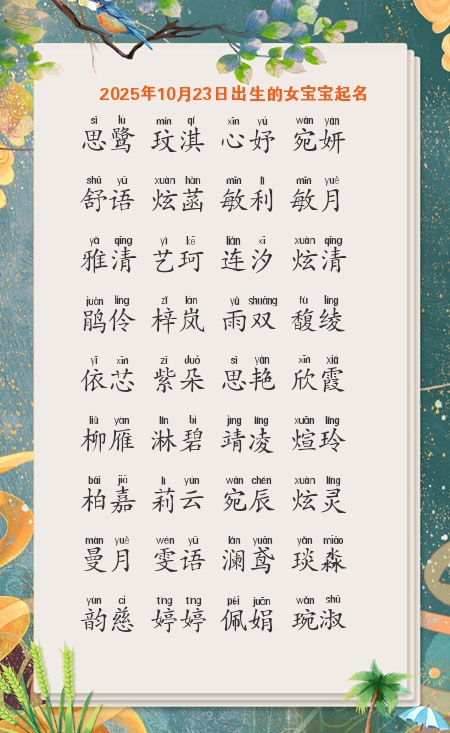 2025年10月23日出生的女宝宝起名
sī lù mín qí xīn yú wǎn yán
思鹭 玟淇 心妤 宛妍
shū yǔ xuàn hàn mǐn lì mǐn yuè
舒语 炫菡 敏利 敏月
yǎ qīng yì kē lián xī xuàn qīng
雅清 艺珂 连汐 炫清
juān líng zǐ lán yǔ shuāng fù líng
鹃伶 梓岚 雨双 馥绫
yī xīn zǐ duǒ sī yàn xīn xiá
依芯 紫朵 思艳 欣霞
liǔ yàn lín bì jìng líng xuān líng
柳雁 淋碧 靖凌 煊玲
bǎi jiā lì yún wǎn chén xuàn líng
柏嘉 莉云 宛辰 炫灵
màn yuè wén yǔ lán yuān yǎn miǎo
曼月 雯语 澜鸢 琰淼
yùn cí tíng tíng pèi juān wǎn shū
韵慈 婷婷 佩娟 琬淑